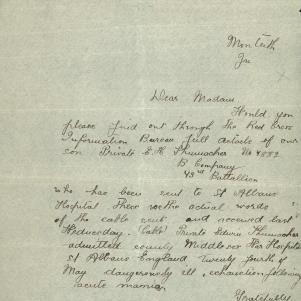 Monteith
Dear Madam
Would you
please find out through the Red Cross
Information Bureau full details of our
son Private E. H. Thumacher No 4882
B Company
43rd Battallion
who has been sent to St Albans
Hospital These are the actual words
of the cable sent and received last
Wednesday. (Cable) Private Thumacher
admitted county Middlesex War Hospital
St Albans England twenty fourth of
May dangerously ill, exhaustion following
acute mania.
Gratefully